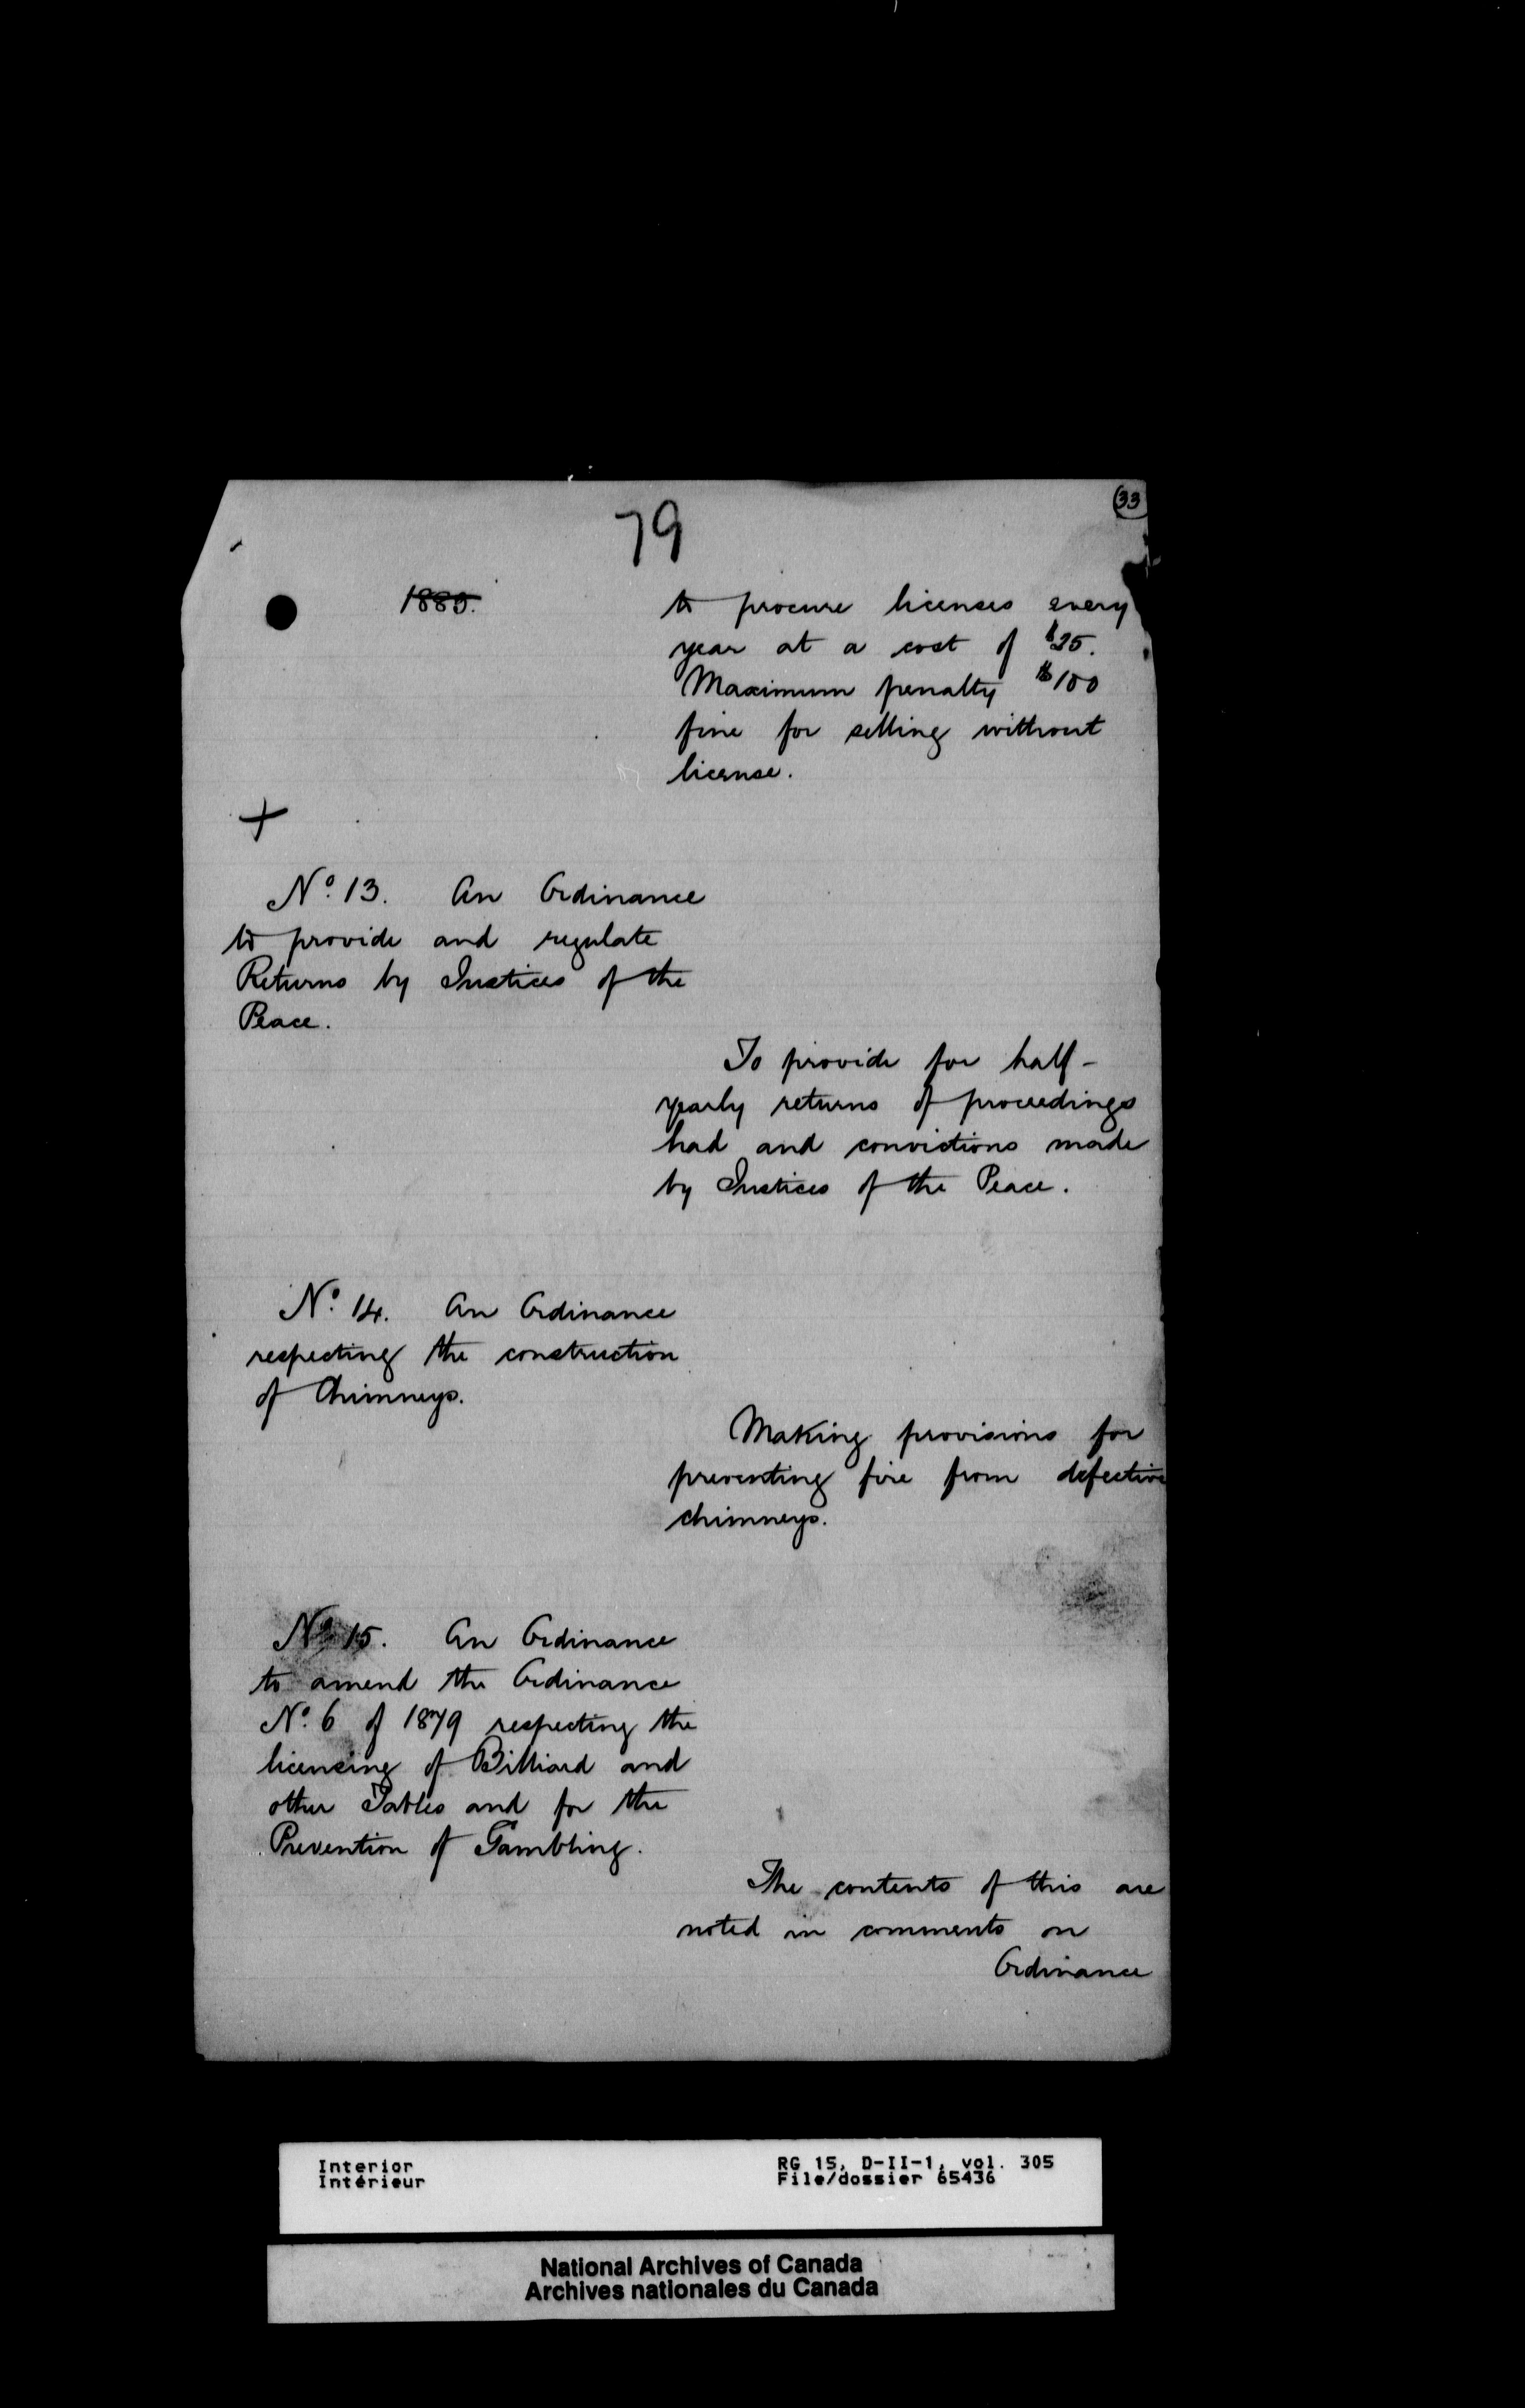 33
79
1885.
to procure licenses every
year at a cost of $25.
Maximum penalty $100
fine for selling without
license.
+
No. 13. An Ordinance
to provide and regulate
Returns by Justices of the
Peace.
To provide for half-
yearly returns of proceedings
had and convictions made
by Justices of the Peace.
No. 14. An Ordinance
respecting the construction
of Chimneys.
Making provisions for
preventing fire from defective
chimneys.
No. 15. An Ordinance
to amend the Ordinance
No. 6 of 1879 respecting the
licensing of Billiard and
other Tables and for the
Prevention of Gambling.
The contents of this are
noted in comments on
Ordinance
Interior
Intérieur
RG 15, D-II-1, vol. 305
File/dossier 65436
National Archives of Canada
Archives nationales du Canada